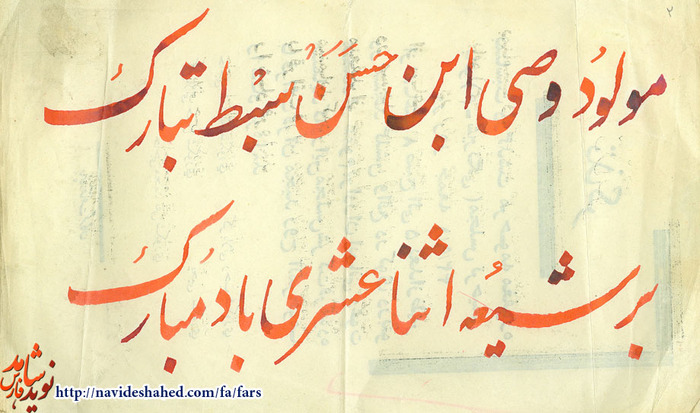 ۲
مولود وصی ابن حسن سبط تبارک
بر شیعه اثنا عشری باد مبارک
نوید شاهد
فارس
http://navideshahed.com/fa/fars